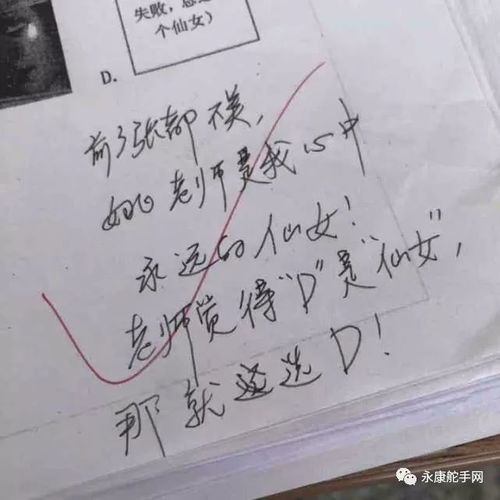 失败，
个仙女）
D.
前3张都不美，
老师是我心中
永远的仙女！
老师觉得“D”是“仙女”，
那就选D！
永康舵手网